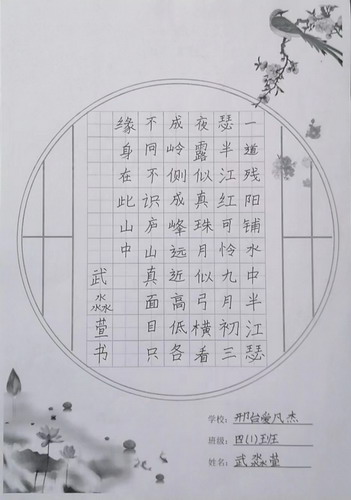 一道残阳铺水中半江瑟
瑟半江红可怜九月初三
夜露似真珠月似弓横看
成岭侧成峰远近高低各
不同不识庐山真面目只
缘身在此山中
武淼萱书
学校：邢台
班级：四(1)班
姓名：武淼萱